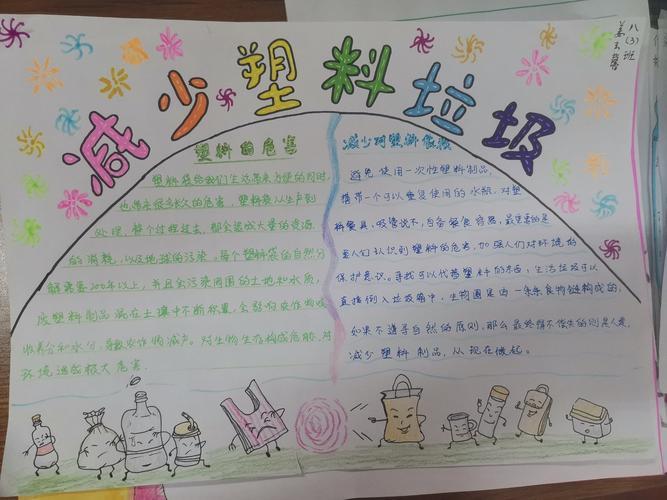 减少塑料垃圾
八(3)班
塑料的危害
塑料袋给我们生活带来方便的同时,
也带来很多长久的危害,塑料袋从生产到
处理,整个过程过去,都会造成大量的资源
的消耗,以及地球的污染。每个塑料袋的自然分
解需要200年以上,并且会污染周围的土地和水质,
废塑料制品混在土壤中不断积累,会影响农作物吸
收养分和水分,导致农作物减产。对生物生存构成危胁,对
环境造成极大危害.
减少对塑料依赖
避免使用一次性塑料制品,
携带一个可以重复使用的水瓶,对塑
料餐具,吸管说不,自备餐食容器,最重要的是
要人们认识到塑料的危害,加强人们对环境的
保护意识。寻找可以代替塑料的东西;生活垃圾可以
直接倒入垃圾箱中,生物圈是由一条条食物链构成的,
如果不遵守自然的原则,那么最终得不偿失的则是人类,
减少塑料制品,从现在做起。